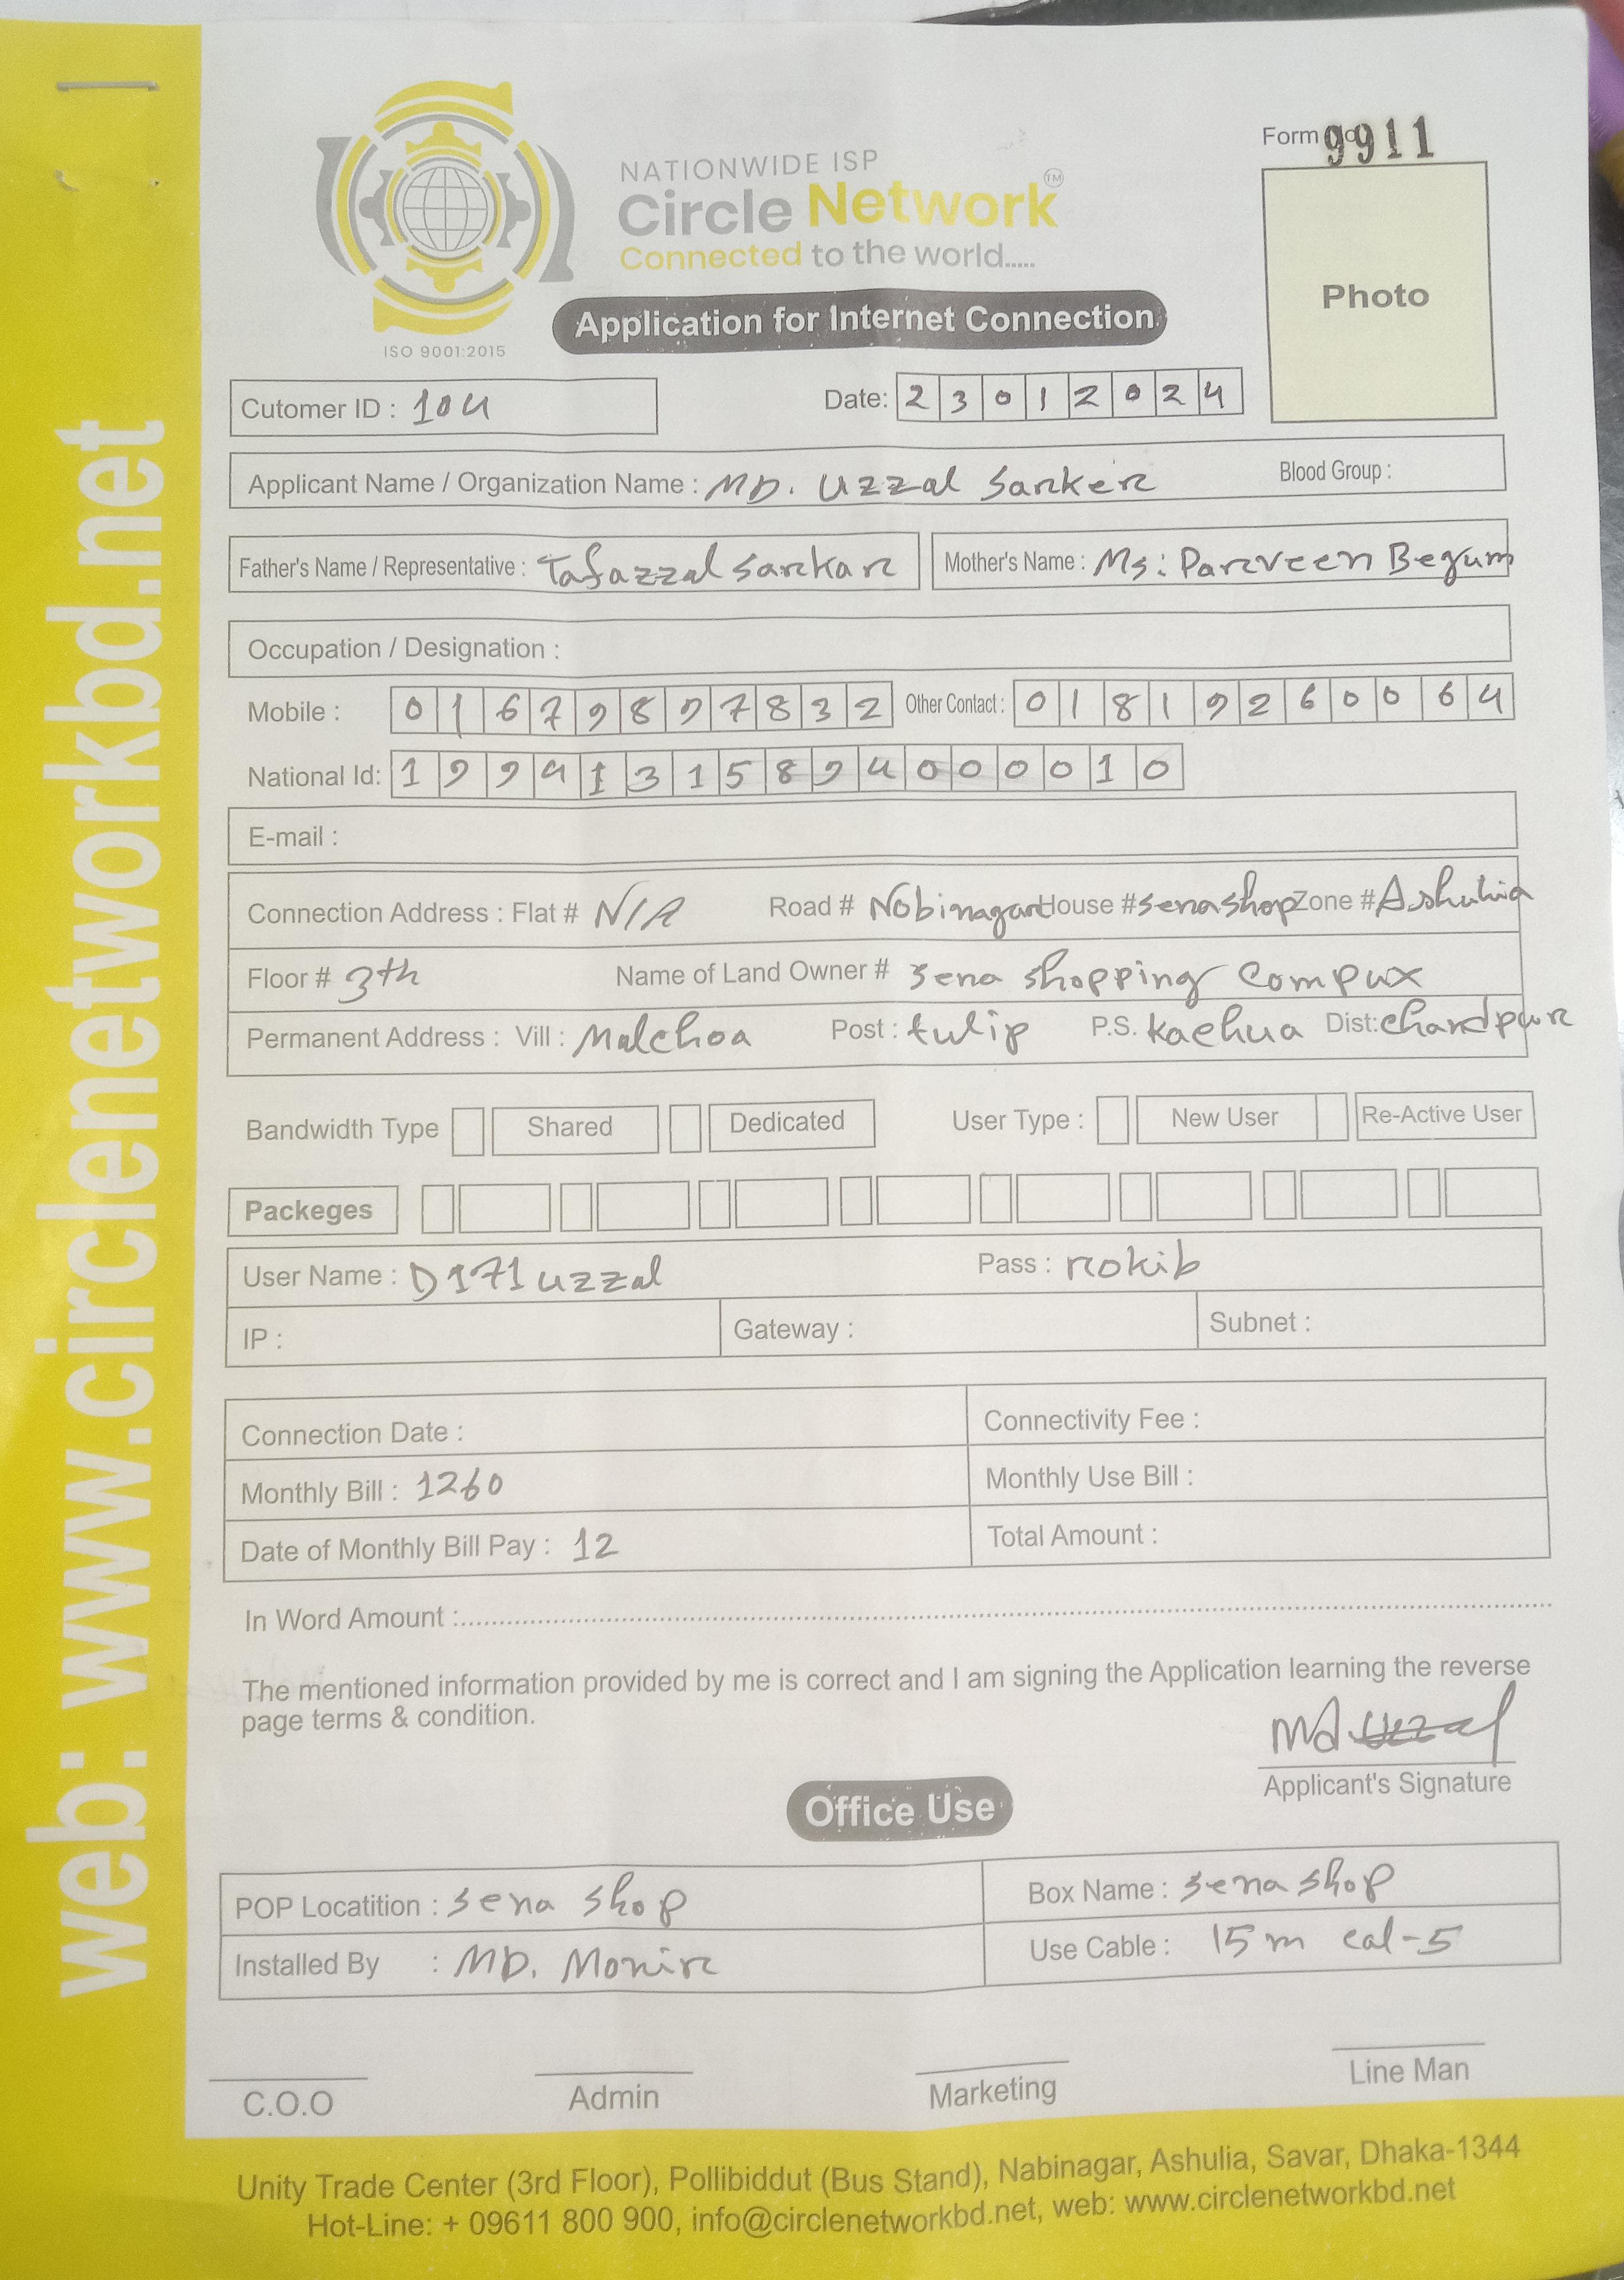 web: www.circlenetworkbd.net
Form 9911
NATIONWIDE ISP
Circle Network TM
Connected to the world.....
ISO 9001:2015
Application for Internet Connection
Photo
Cutomer ID : 104
Date: 23012024
Applicant Name / Organization Name : MD. Uzzal Sarker Blood Group :
Father's Name / Representative : Tafazzal Sarkar Mother's Name : Ms: Parveen Begum
Occupation / Designation :
Mobile : 01679897832 Other Contact : 01819260064
National Id: 19941315894000010
E-mail :
Connection Address : Flat # N/A Road # Nobinagar House # Sena shop Zone # Ashulia
Floor # 3th Name of Land Owner # Sena Shopping Complex
Permanent Address : Vill : Malchoa Post : tulip P.S. Kachua Dist: Chandpur
Bandwidth Type Shared Dedicated User Type : New User Re-Active User
Packeges
User Name : D171uzzal Pass : rokib
IP : Gateway : Subnet :
Connection Date : Connectivity Fee :
Monthly Bill : 1260 Monthly Use Bill :
Date of Monthly Bill Pay : 12 Total Amount :
In Word Amount :
The mentioned information provided by me is correct and I am signing the Application learning the reverse
page terms & condition.
Md. Uzzal
Applicant's Signature
Office Use
POP Locatition : Sena Shop Box Name : Sena Shop
Installed By : MD. Monir Use Cable : 15m cat-5
C.O.O Admin Marketing Line Man
Unity Trade Center (3rd Floor), Pollibiddut (Bus Stand), Nabinagar, Ashulia, Savar, Dhaka-1344
Hot-Line: + 09611 800 900, info@circlenetworkbd.net, web: www.circlenetworkbd.net